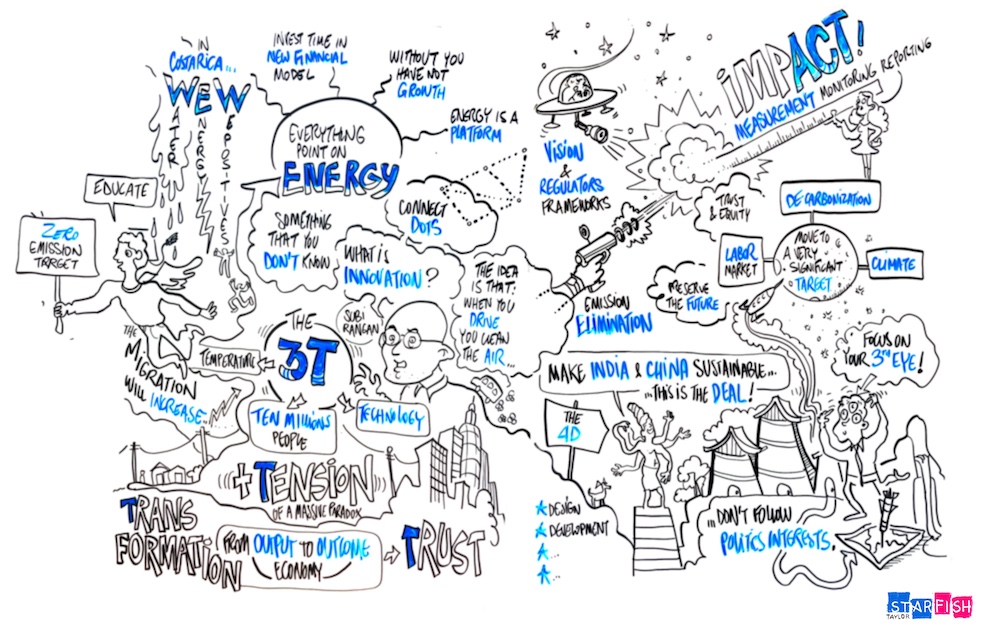 IN
COSTARICA...
WEW
WATER
ENERGY
WEPOSITIVES
INVEST TIME IN
NEW FINANCIAL
MODEL
WITHOUT YOU
HAVE NOT
GROWTH
ENERGY IS A
PLATFORM
EVERYTHING
POINT ON
ENERGY
EDUCATE
ZERO
EMISSION
TARGET
SOMETHING
THAT YOU
DON'T KNOW
CONNECT
DOTS
WHAT IS
INNOVATION?
THE IDEA
IS THAT:
WHEN YOU
DRIVE
YOU CLEAN
THE AIR...
SUBI
RANGAN
THE
3T
TEMPERATURE
TEN MILLIONS
PEOPLE
TECHNOLOGY
THE
MIGRATION
WILL INCREASE...
+TENSION
OF A MASSIVE PARADOX
TRANS
FORMATION
FROM OUTPUT TO OUTCOME
ECONOMY
TRUST
IMPACT!
MEASUREMENT MONITORING REPORTING
VISION
&
REGULATORS
FRAMEWORKS
TRUST
& EQUITY
DECARBONIZATION
LABOR
MARKET
MOVE TO
A VERY
SIGNIFICANT
TARGET
CLIMATE
PRESERVE
THE FUTURE
EMISSION
ELIMINATION
FOCUS ON
YOUR 3RD EYE!
MAKE INDIA & CHINA SUSTAINABLE...
...THIS IS THE DEAL!
THE
4D
DESIGN
DEVELOPMENT
...
...
...DON'T FOLLOW
POLITICS INTERESTS.
STARFISH
TAYLOR